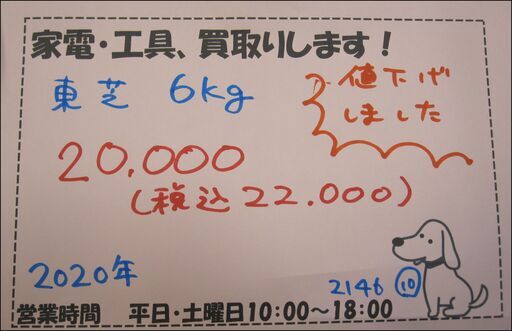 家電・工具、買取りします！
東芝 6kg
値下げ
しました
20,000
(税込22.000)
2020年
2146 ⑩
営業時間 平日・土曜日10:00～18:00